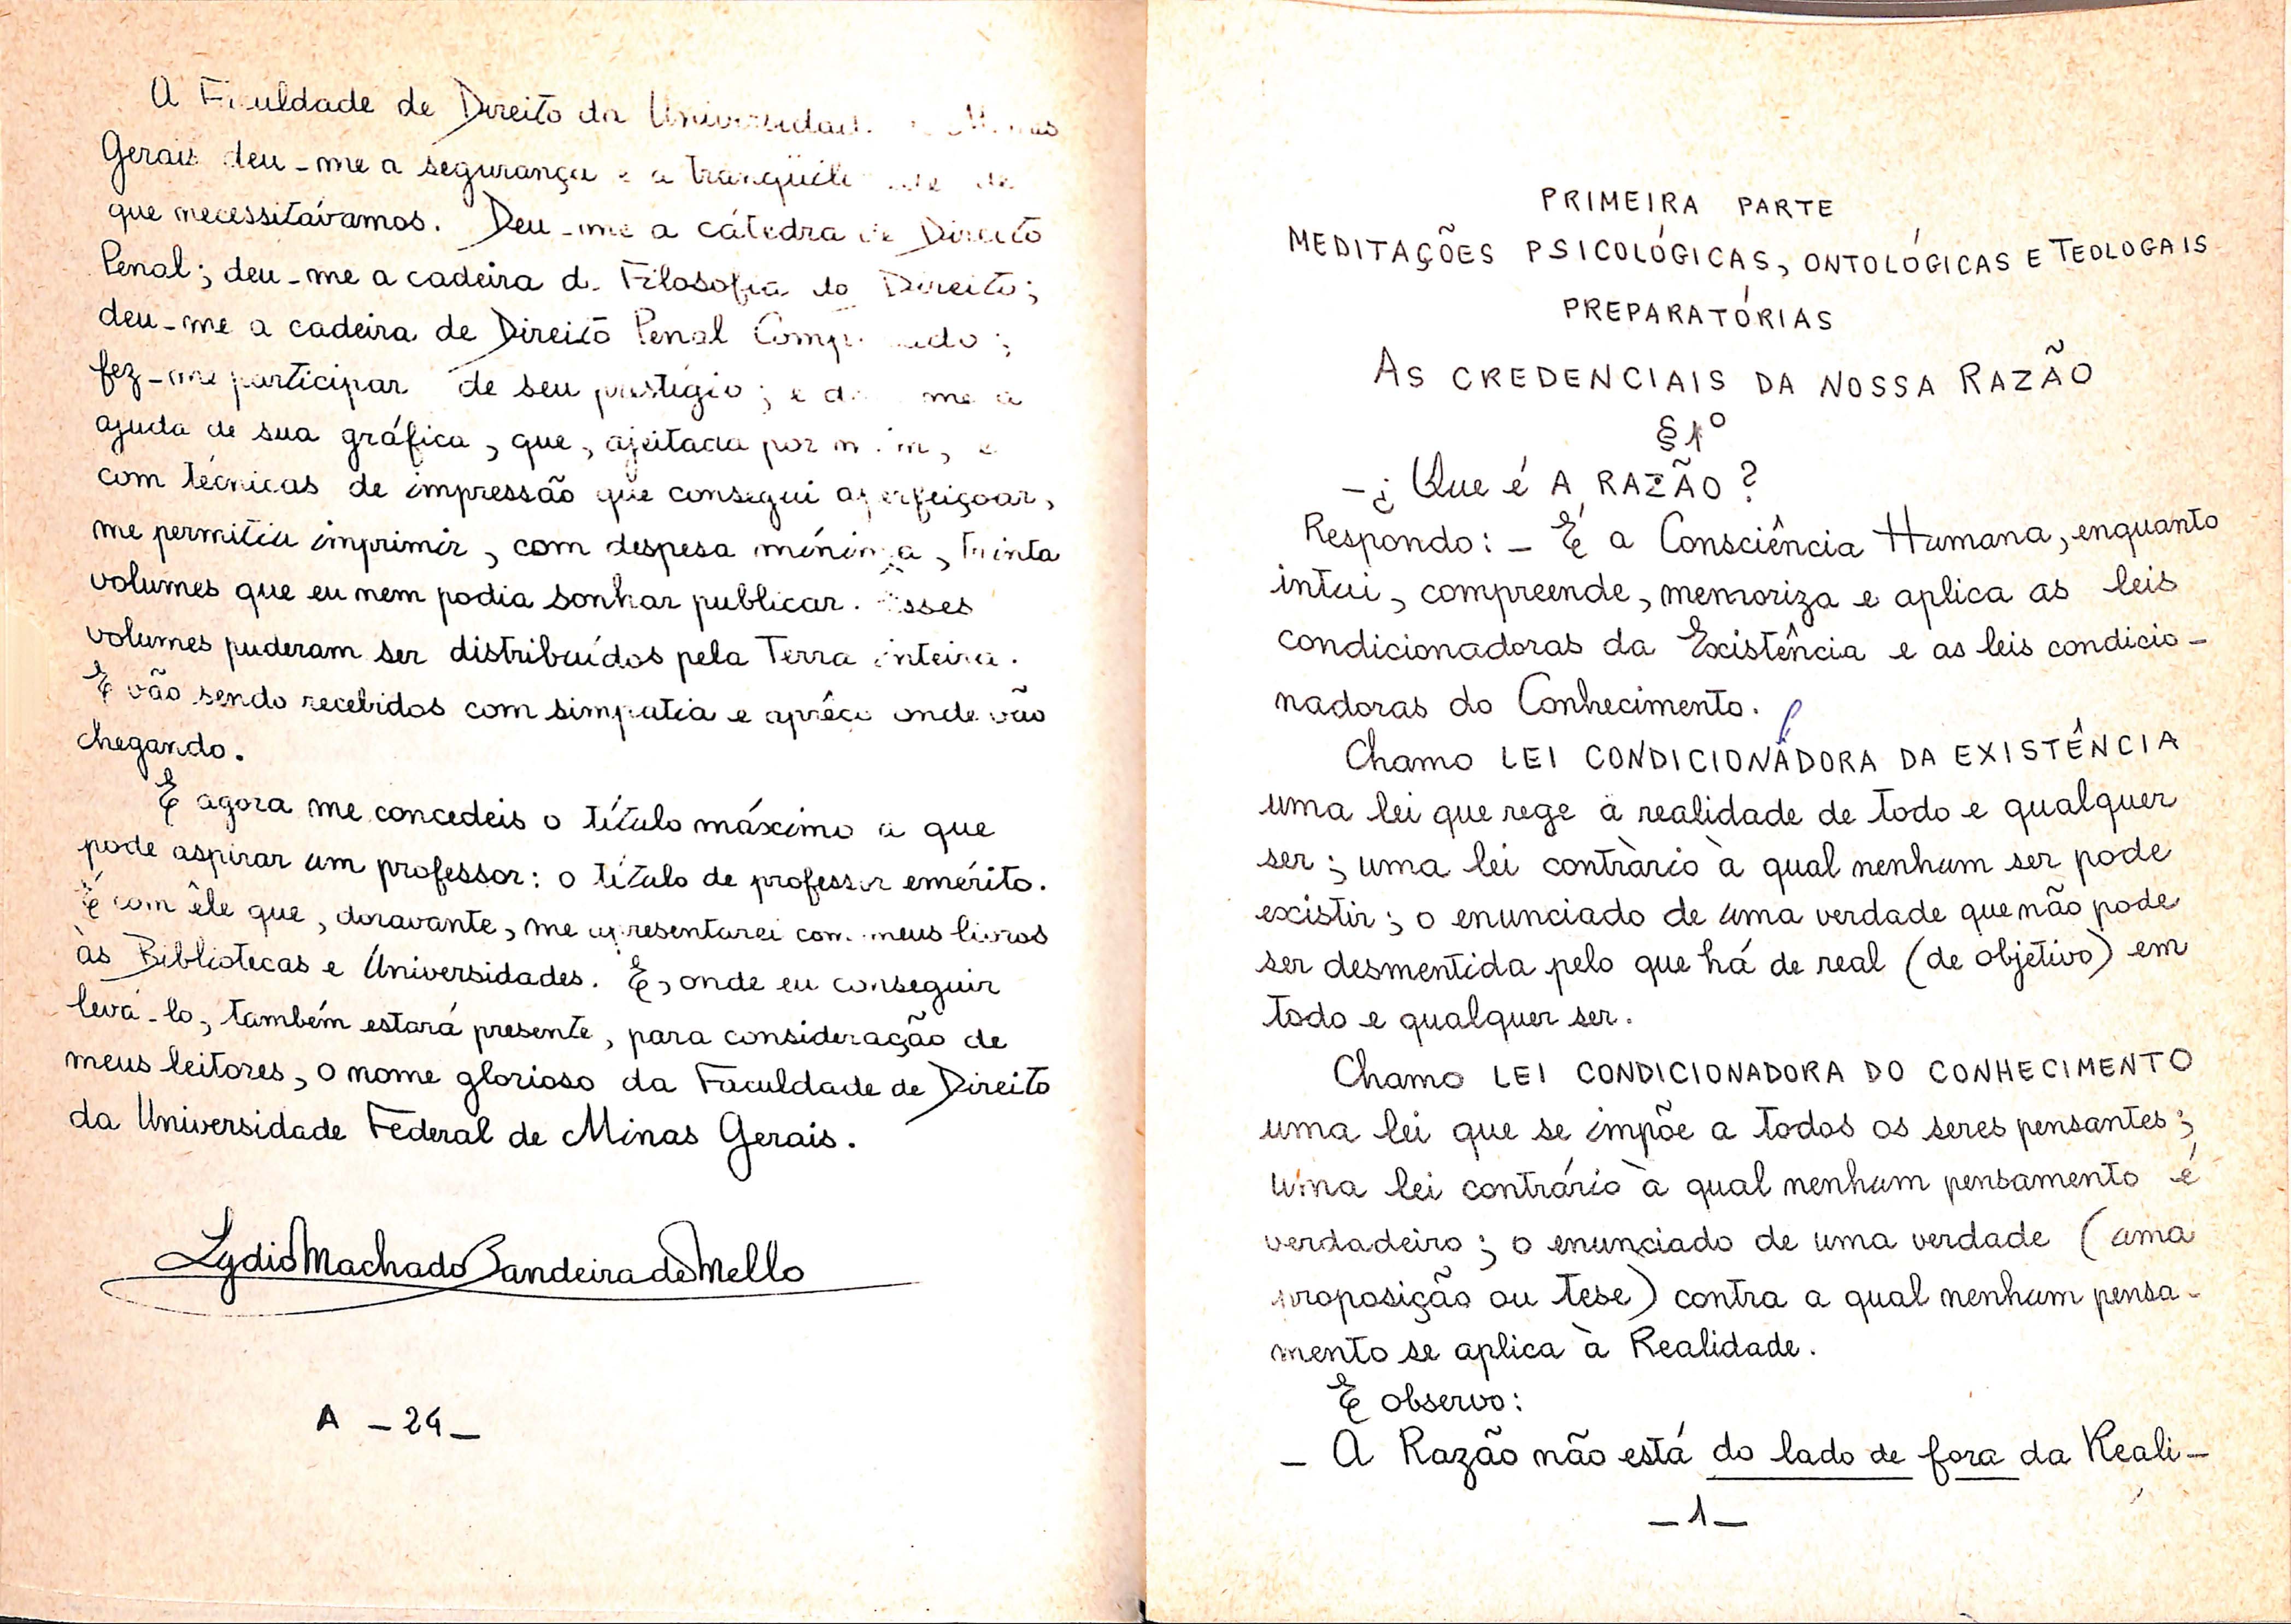 A Faculdade de Direito da Universidade de Minas
Gerais deu-me a segurança e a tranqüilidade de
que necessitávamos. Deu-me a cátedra de Direito
Penal; deu-me a cadeira de Filosofia do Direito;
deu-me a cadeira de Direito Penal Comparado;
fez-me participar de seu prestígio; e deu-me a
ajuda de sua gráfica, que, ajeitada por mim, e
com técnicas de impressão que consegui aperfeiçoar,
me permitiu imprimir, com despesa mínima, trinta
volumes que eu nem podia sonhar publicar. Esses
volumes puderam ser distribuídos pela Terra inteira.
E vão sendo recebidos com simpatia e aprêço onde vão
chegando.
E agora me concedeis o título máximo a que
pode aspirar um professor: o título de professor emérito.
É com êle que, doravante, me apresentarei com meus livros
às Bibliotecas e Universidades. E, onde eu conseguir
levá-lo, também estará presente, para consideração de
meus leitores, o nome glorioso da Faculdade de Direito
da Universidade Federal de Minas Gerais.
Lydio Machado Bandeira de Mello
A -24-
PRIMEIRA PARTE
MEDITAÇÕES PSICOLÓGICAS, ONTOLÓGICAS E TEOLOGAIS
PREPARATÓRIAS
AS CREDENCIAIS DA NOSSA RAZÃO
§1º
-¿ Que é A RAZÃO?
Respondo: - É a Consciência Humana, enquanto
intui, compreende, memoriza e aplica as leis
condicionadoras da Existência e as leis condicio-
nadoras do Conhecimento.
Chamo LEI CONDICIONADORA DA EXISTÊNCIA
uma lei que rege a realidade de todo e qualquer
ser; uma lei contràrio à qual nenhum ser pode
existir; o enunciado de uma verdade que não pode
ser desmentida pelo que há de real (de objetivo) em
todo e qualquer ser.
Chamo LEI CONDICIONADORA DO CONHECIMENTO
uma lei que se impõe a todos os seres pensantes;
uma lei contrário à qual nenhum pensamento é
verdadeiro; o enunciado de uma verdade (uma
proposição ou tese) contra a qual nenhum pensa-
mento se aplica à Realidade.
E observo:
- A Razão não está do lado de fora da Reali-
-1-